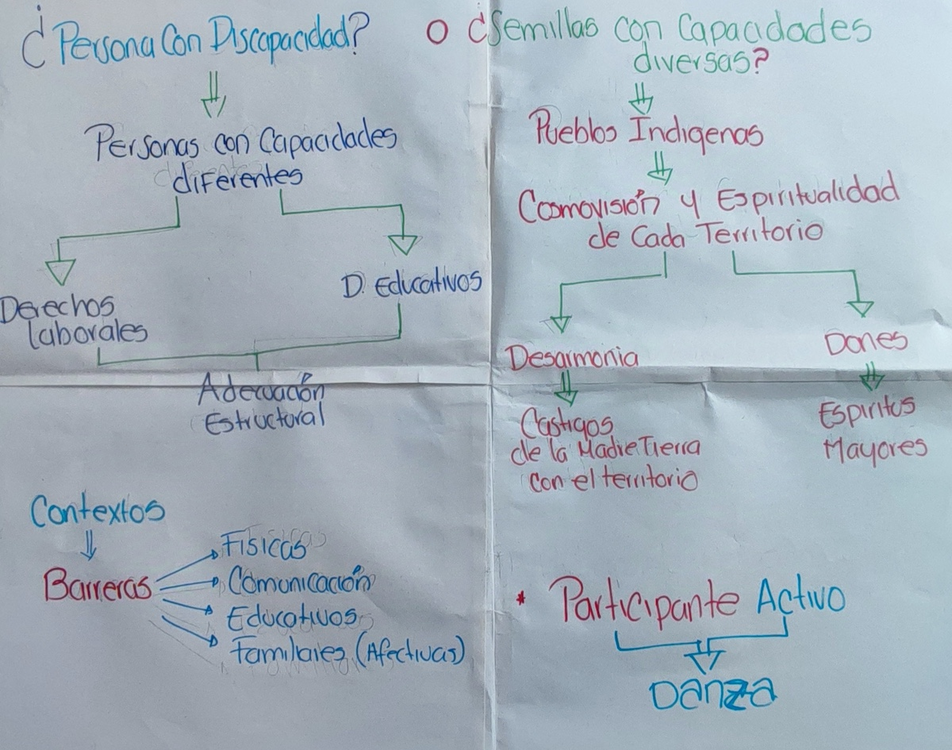 ¿Persona Con Discapacidad?
Personas con Capacidades
diferentes
Derechos
laborales
D. Educativos
Adecuación
Estructural
Contextos
Barreras
Físicas
Comunicación
Educativos
Familiares (Afectivas)
O ¿Semillas con Capacidades
diversas?
Pueblos Indigenas
Cosmovisión y Espiritualidad
de Cada Territorio
Desarmonia
Castigos
de la Madre Tierra
con el territorio
Dones
Espiritus
Mayores
* Participante Activo
Danza